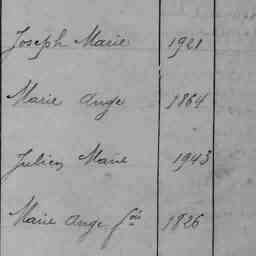 Joseph Marie 1921
Marie Ange 1864
Julien Marie 1943
Marie Ange fçois 1826